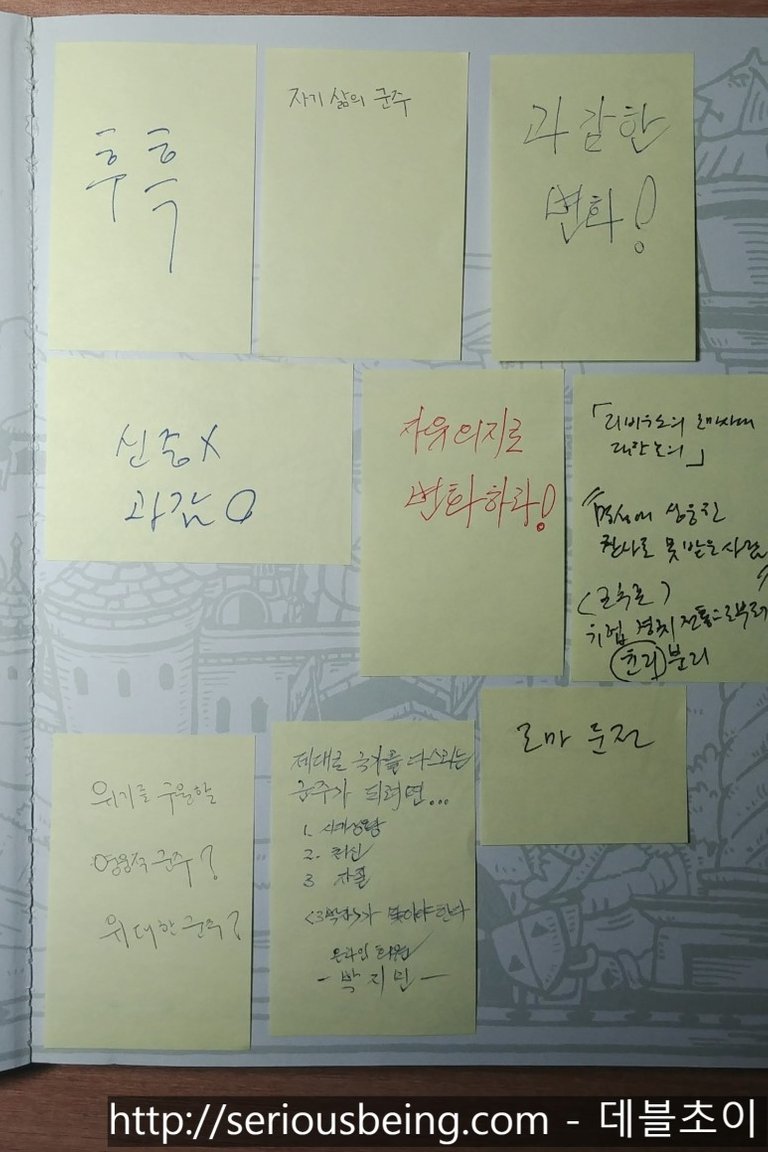 후흑
자기 삶의 군주
과감한
변화!
신중X
과감O
자유의지로
변화하라!
「리비우스의 로마사에
대한 논의」
명성에 상응한
찬사를 못 받은 사람
(군주론)
기업 정치 전통으로부터
윤리 분리
로마 둔전
위기를 구원할
영웅적 군주?
위대한 군주?
제대로 국가를 다스리는
군주가 되려면...
1. 시대상황
2. 최신
3 자질
<3박자>가 맞아야 한다
온라인 회원
- 박지민 -
http://seriousbeing.com - 데블초이